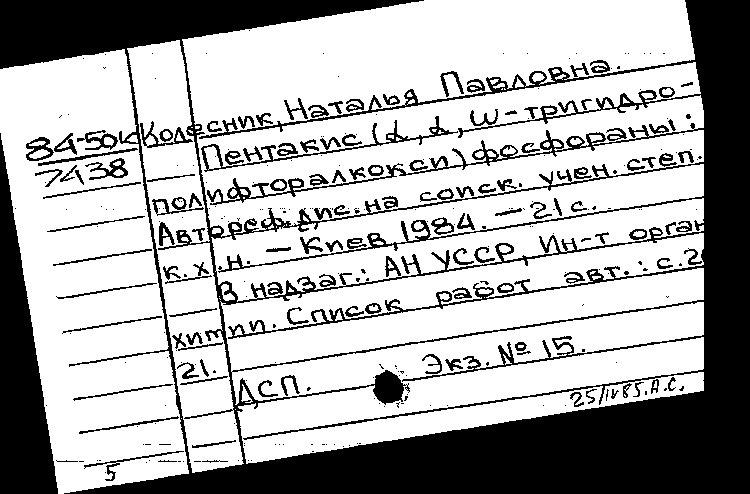 84-50к
7438
Колесник, Наталья Павловна.
Пентакис (α, α, ω-тригидро-
полифторалкокси) фосфораны:
Автореф. дис. на соиск. учен. степ.
к. х. н. — Киев, 1984. — 21 с.
В надзаг.: АН УССР, Ин-т орган
химии. Список работ авт.: с. 20
21.
ДСП. Экз. № 15.
25/IV85. А.С.
5